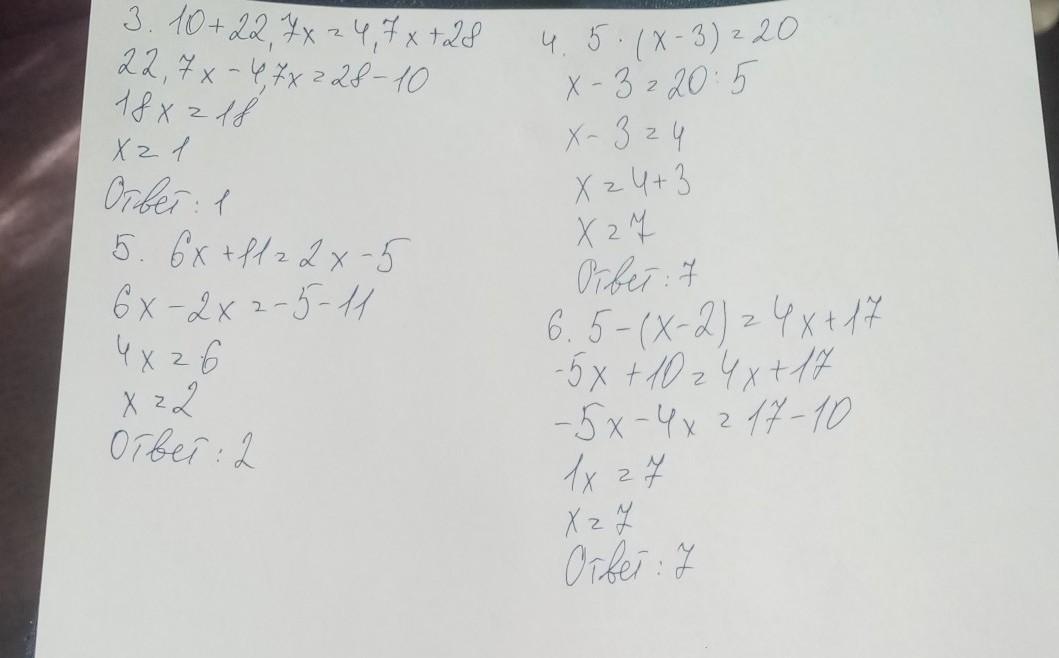 3. 10+22,7x=4,7x+28
22,7x-4,7x=28-10
18x=18
x=1
Ответ: 1
5. 6x+11=2x-5
6x-2x=-5-11
4x=6
x=2
Ответ: 2
4. 5·(x-3)=20
x-3=20:5
x-3=4
x=4+3
x=7
Ответ: 7
6. 5-(x-2)=4x+17
-5x+10=4x+17
-5x-4x=17-10
1x=7
x=7
Ответ: 7